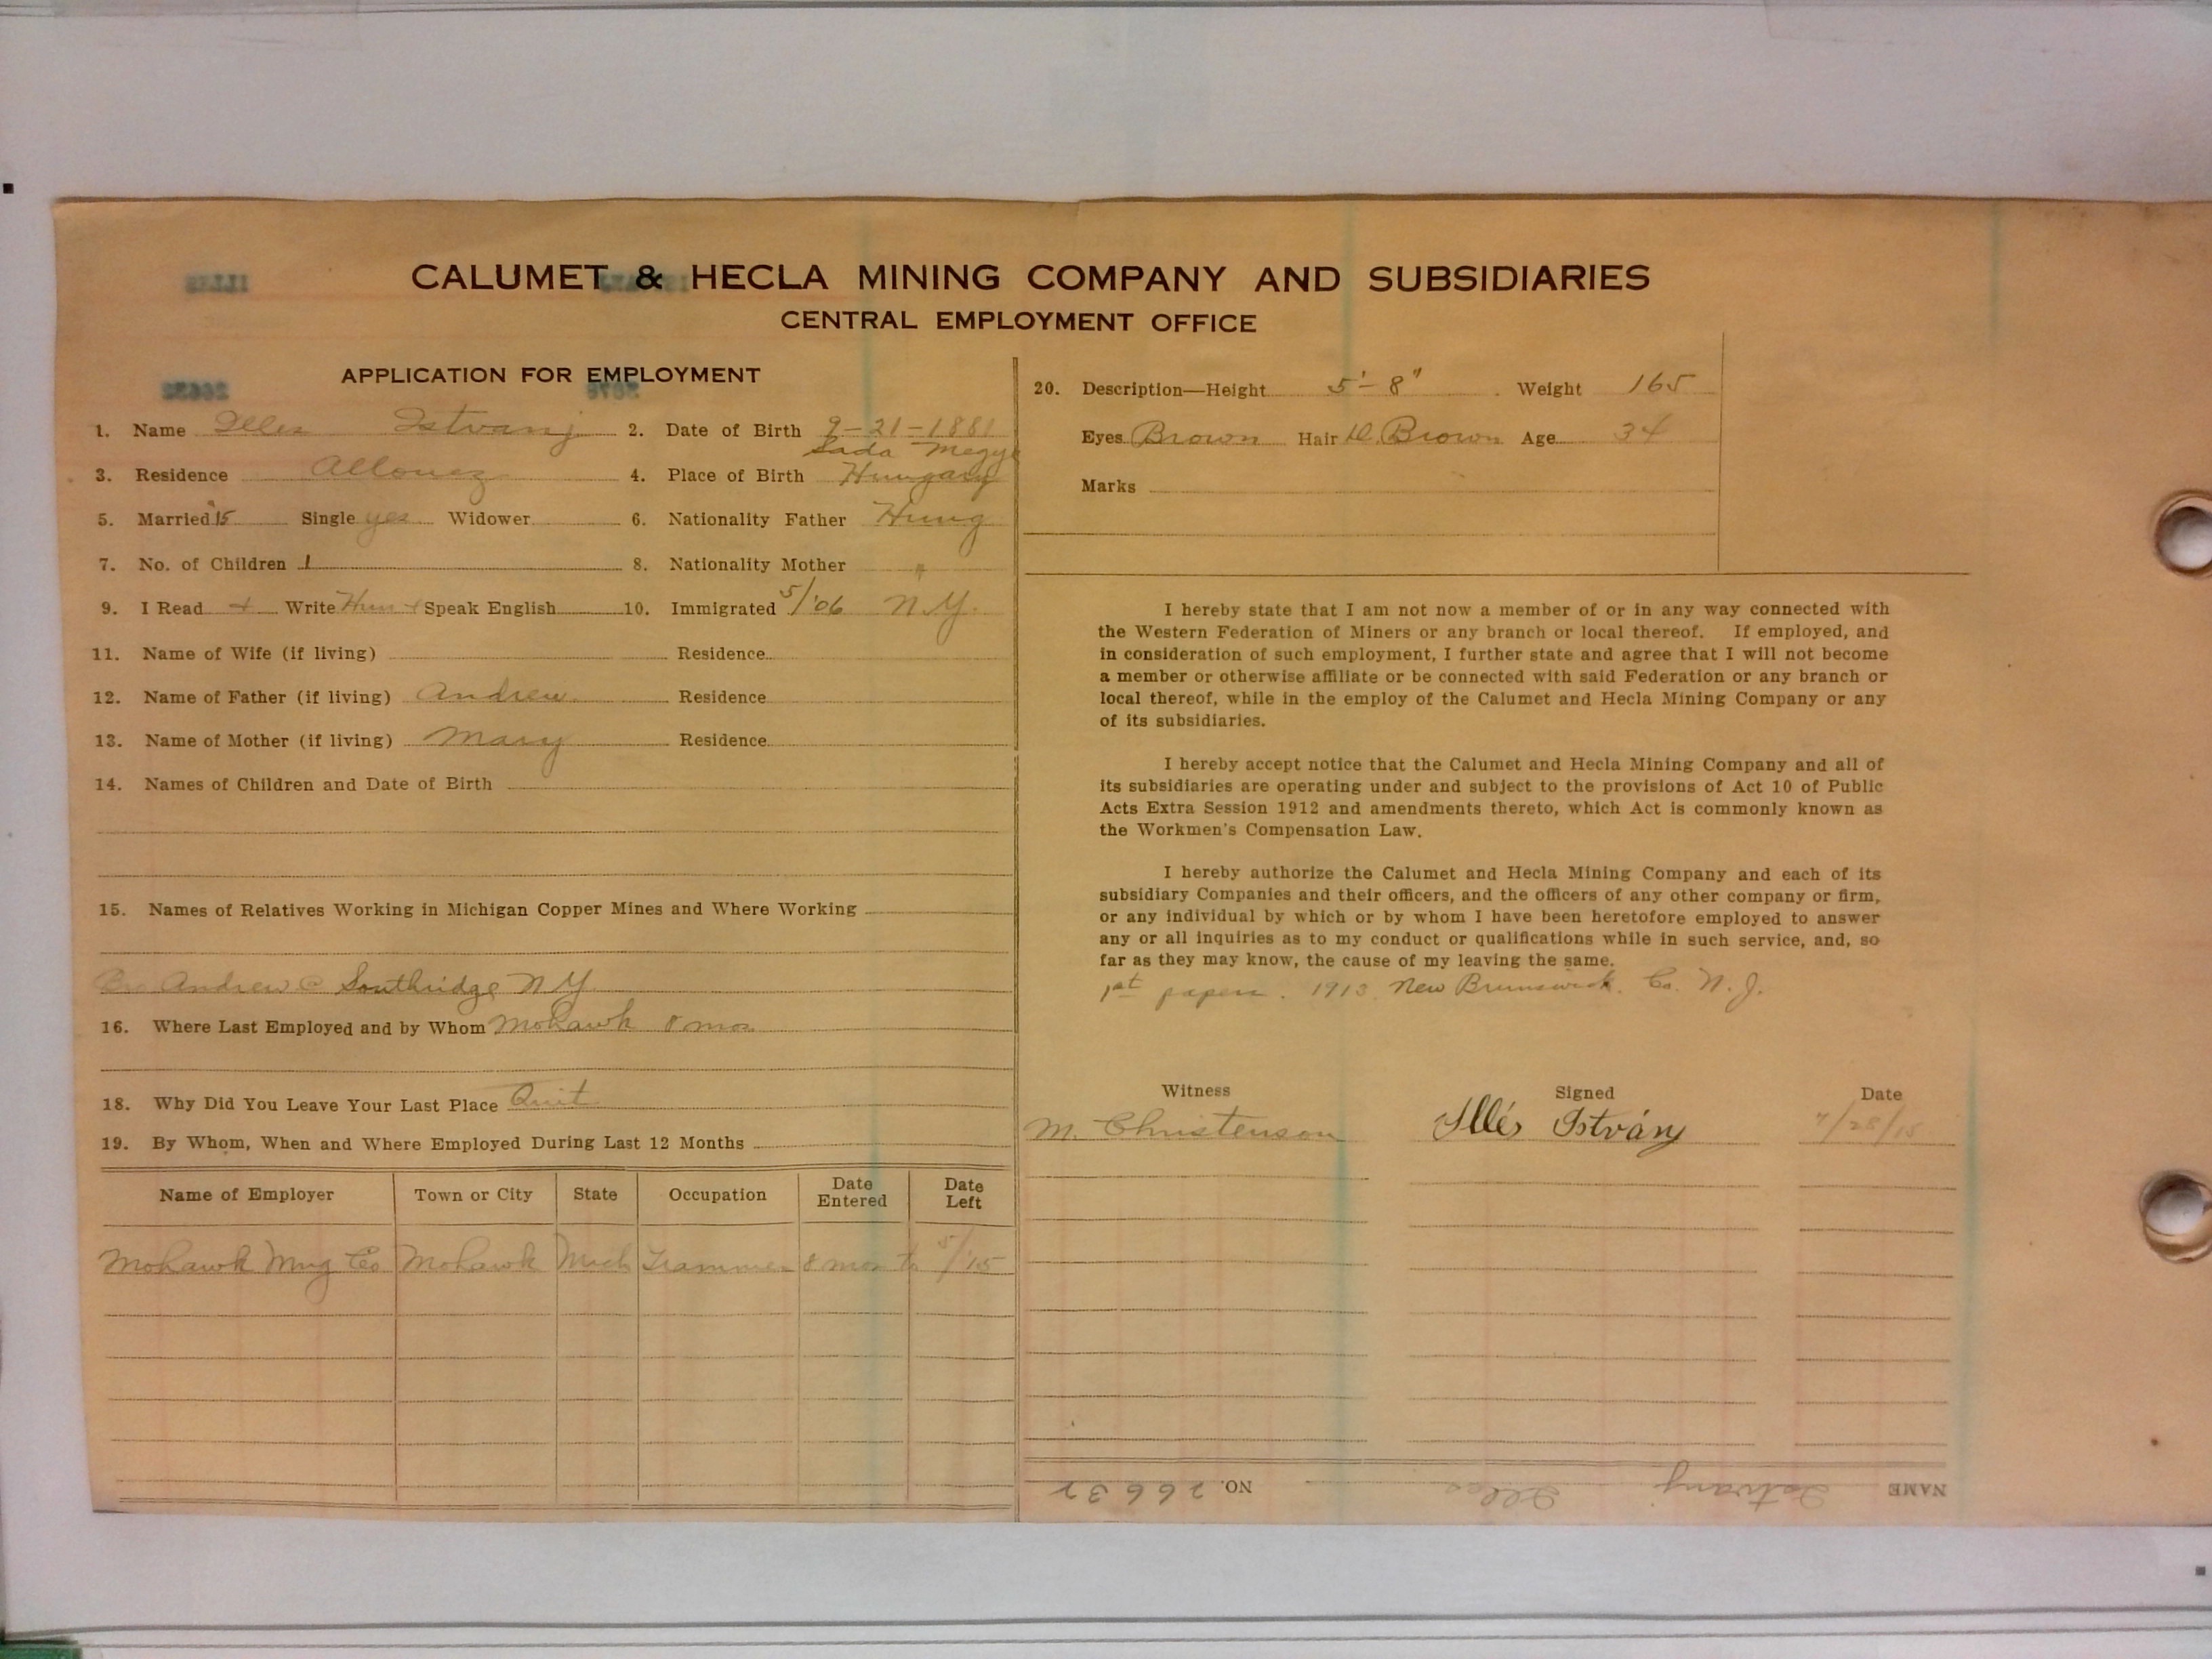 CALUMET & HECLA MINING COMPANY AND SUBSIDIARIES
CENTRAL EMPLOYMENT OFFICE
APPLICATION FOR EMPLOYMENT
1. Name Illes Istvanj 2. Date of Birth 9-21-1881
Sada Megye
3. Residence Allouez 4. Place of Birth Hungary
5. Married '15 Single yes Widower 6. Nationality Father Hung
7. No. of Children 1 8. Nationality Mother "
9. I Read + Write Hun + Speak English 10. Immigrated 5/'06 N.Y.
11. Name of Wife (if living) Residence
12. Name of Father (if living) Andrew Residence
13. Name of Mother (if living) Mary Residence
14. Names of Children and Date of Birth
15. Names of Relatives Working in Michigan Copper Mines and Where Working
Bro Andrew @ Southridge N Y
16. Where Last Employed and by Whom Mohawk 8 mos
18. Why Did You Leave Your Last Place Quit
19. By Whom, When and Where Employed During Last 12 Months
Name of Employer Town or City State Occupation Date Entered Date Left
Mohawk Mng Co Mohawk Mich Trammer 8 mos to 5/'15
20. Description—Height 5'-8" Weight 165
Eyes Brown Hair D. Brown Age 34
Marks
I hereby state that I am not now a member of or in any way connected with
the Western Federation of Miners or any branch or local thereof. If employed, and
in consideration of such employment, I further state and agree that I will not become
a member or otherwise affiliate or be connected with said Federation or any branch or
local thereof, while in the employ of the Calumet and Hecla Mining Company or any
of its subsidiaries.
I hereby accept notice that the Calumet and Hecla Mining Company and all of
its subsidiaries are operating under and subject to the provisions of Act 10 of Public
Acts Extra Session 1912 and amendments thereto, which Act is commonly known as
the Workmen's Compensation Law.
I hereby authorize the Calumet and Hecla Mining Company and each of its
subsidiary Companies and their officers, and the officers of any other company or firm,
or any individual by which or by whom I have been heretofore employed to answer
any or all inquiries as to my conduct or qualifications while in such service, and, so
far as they may know, the cause of my leaving the same.
1st papers. 1913 New Brunswick. Co. N. J.
Witness Signed Date
M. Christenson Illés István 7/28/15
NAME Istvanj Illes NO. 26632